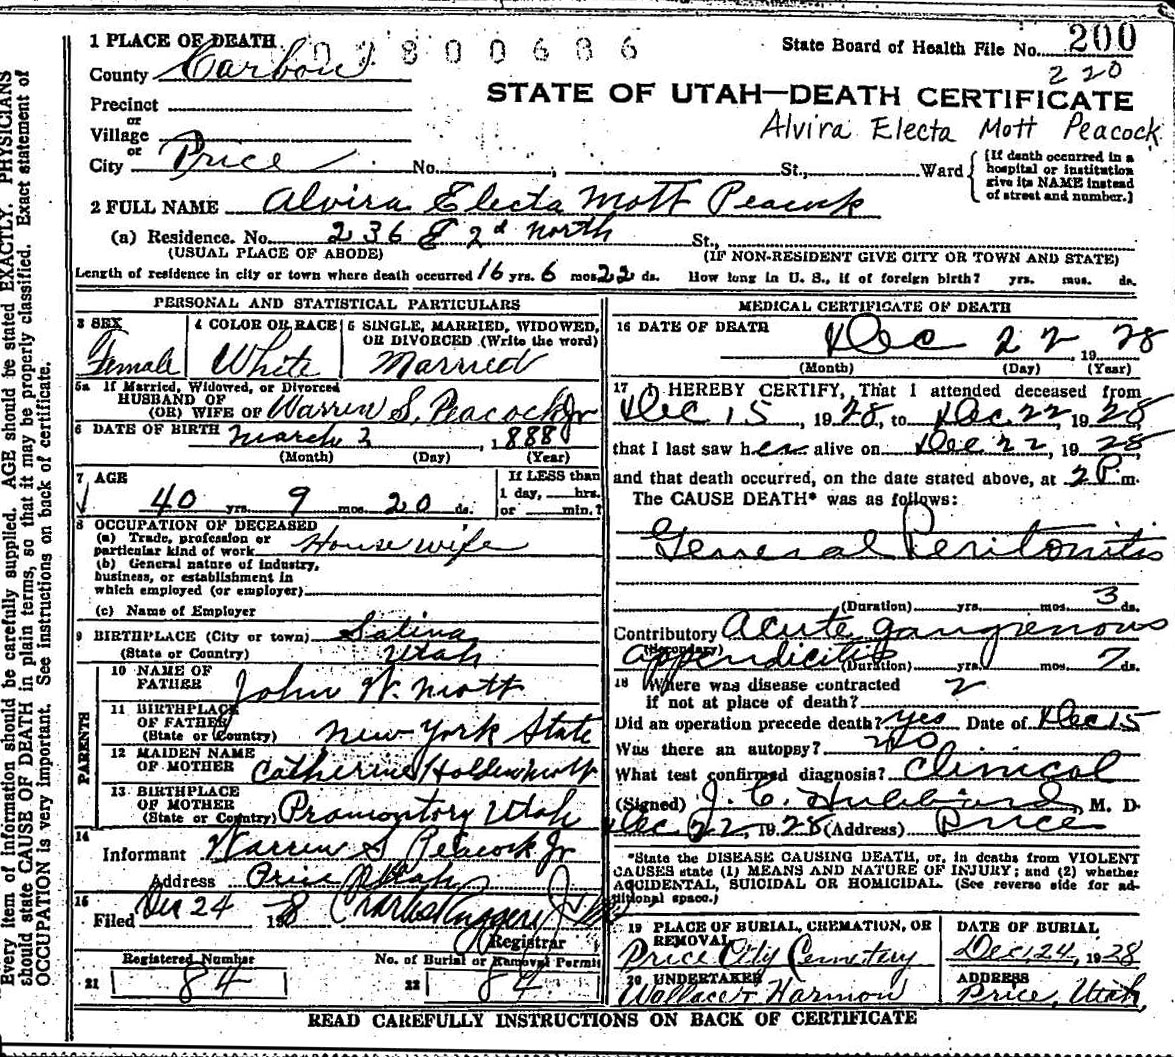 1 PLACE OF DEATH
07800686
State Board of Health File No. 200
220
County Carbon
STATE OF UTAH—DEATH CERTIFICATE
Alvira Electa Mott Peacock
Precinct
or
Village
or
City Price No. St., Ward
[If death occurred in a
hospital or institution
give its NAME instead
of street and number.]
2 FULL NAME Alvira Electa Mott Peacock
(a) Residence. No. 236 E 2d North St.,
(USUAL PLACE OF ABODE) (IF NON-RESIDENT GIVE CITY OR TOWN AND STATE)
Length of residence in city or town where death occurred 16 yrs. 6 mos 22 ds. How long in U. S., if of foreign birth? yrs. mos. ds.
PERSONAL AND STATISTICAL PARTICULARS
3 SEX
Female
4 COLOR OR RACE
White
5 SINGLE, MARRIED, WIDOWED,
OR DIVORCED (Write the word)
Married
5a If Married, Widowed, or Divorced
HUSBAND OF
(OR) WIFE OF Warren S. Peacock Jr
6 DATE OF BIRTH March 2, 1888
(Month) (Day) (Year)
7 AGE
40 yrs. 9 mos. 20 ds.
If LESS than
1 day, hrs.
or min.?
8 OCCUPATION OF DECEASED
(a) Trade, profession or
particular kind of work House wife
(b) General nature of industry,
business, or establishment in
which employed (or employer)
(c) Name of Employer
9 BIRTHPLACE (City or town) Salina
(State or Country) Utah
PARENTS
10 NAME OF
FATHER John W. Mott
11 BIRTHPLACE
OF FATHER
(State or Country) New York State
12 MAIDEN NAME
OF MOTHER Catherine
13 BIRTHPLACE
OF MOTHER
(State or Country) Promontory Utah
14
Informant Warren S Peacock Jr
Address Price Utah
15
Filed Dec 24 1928
Registrar
Registered Number
21 84
No. of Burial or Removal Permit
22 84
MEDICAL CERTIFICATE OF DEATH
16 DATE OF DEATH Dec 22, 1928
(Month) (Day) (Year)
17 I HEREBY CERTIFY, That I attended deceased from
Dec 15, 1928, to Dec 22, 1928
that I last saw her alive on Dec 22, 1928
and that death occurred, on the date stated above, at 2 P.m.
The CAUSE DEATH* was as follows:
General Peritonitis
(Duration) yrs. mos. 3 ds.
Contributory Acute gangrenous
(Secondary)
appendicitis (Duration) yrs. mos. 7 ds.
18 Where was disease contracted
if not at place of death? ?
Did an operation precede death? yes Date of Dec 15
Was there an autopsy? No
What test confirmed diagnosis? Clinical
(Signed) J. C. Hubbard, M. D.
Dec 22, 1928 (Address) Price
*State the DISEASE CAUSING DEATH, or, in deaths from VIOLENT
CAUSES state (1) MEANS AND NATURE OF INJURY; and (2) whether
ACCIDENTAL, SUICIDAL OR HOMICIDAL. (See reverse side for ad-
ditional space.)
19 PLACE OF BURIAL, CREMATION, OR
REMOVAL
Price City Cemetery
DATE OF BURIAL
Dec. 24, 1928
20 UNDERTAKER
Wallace & Harmon
ADDRESS
Price, Utah.
READ CAREFULLY INSTRUCTIONS ON BACK OF CERTIFICATE
Every item of information should be carefully supplied. AGE should be stated EXACTLY. PHYSICIANS
should state CAUSE OF DEATH in plain terms, so that it may be properly classified. Exact statement of
OCCUPATION is very important. See instructions on back of certificate.